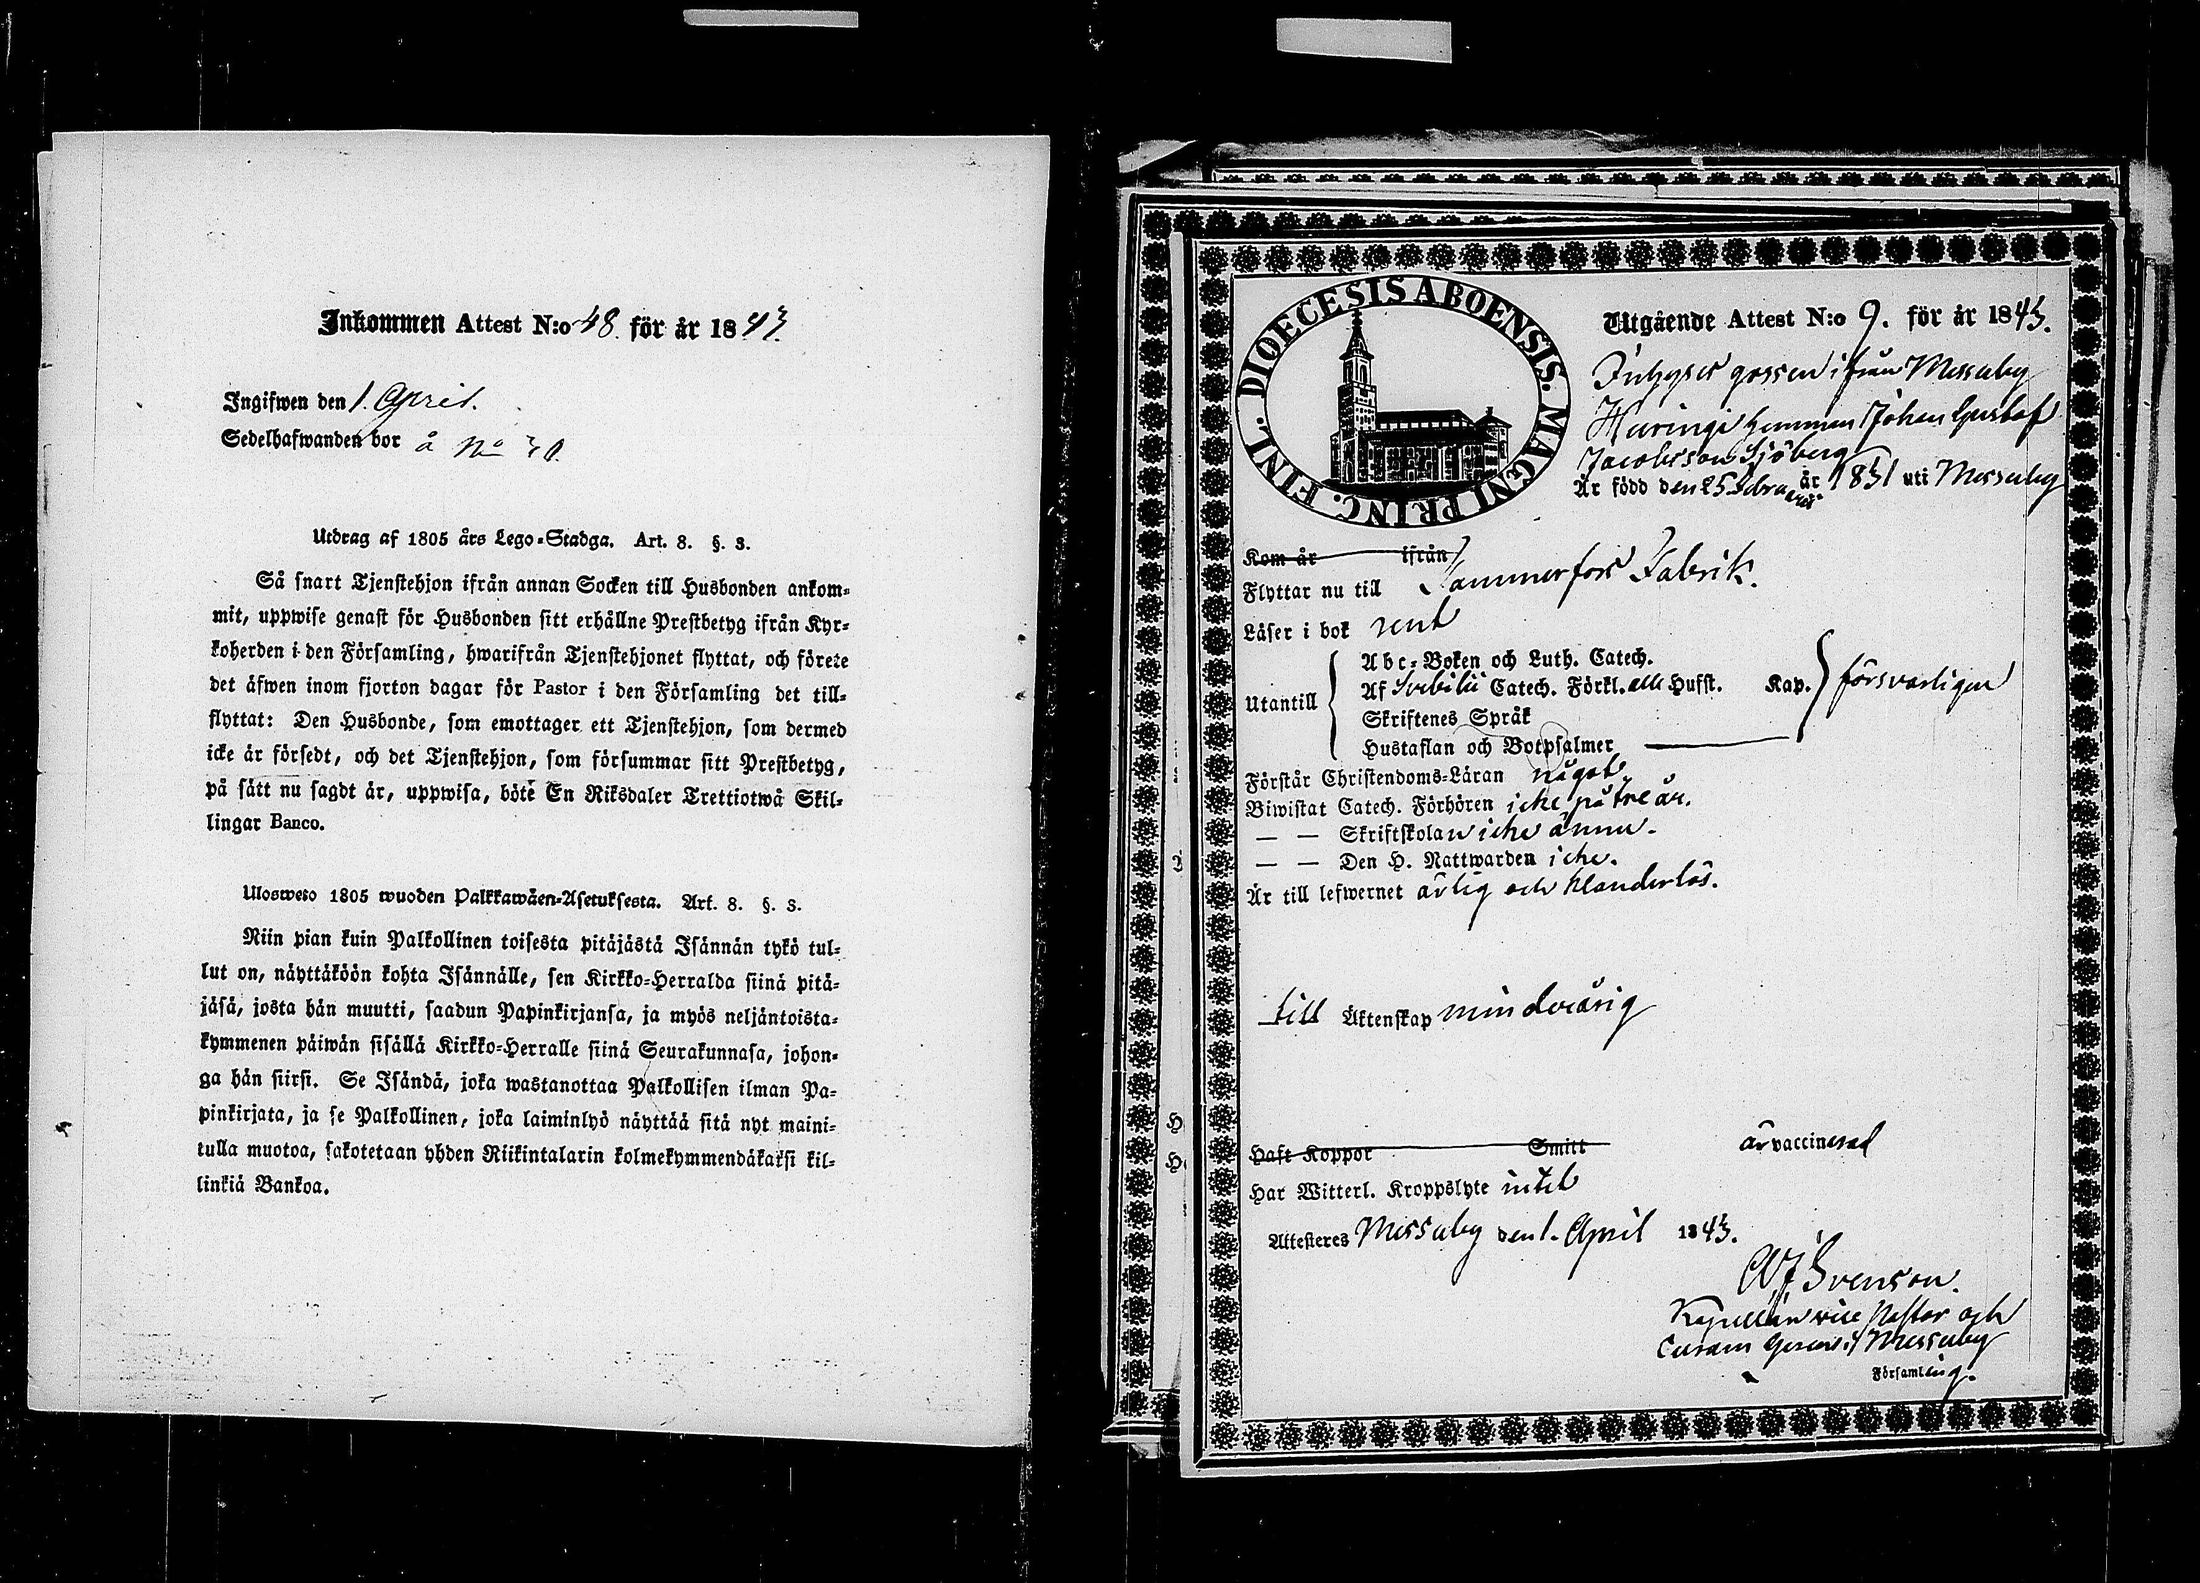 Inkommen Attest N:o 48. för år 1843.
Ingifwen den 1. April.
Sedelhafwanden bor å No 30.
Utdrag af 1805 års Lego-Stadga. Art. 8. §. 3.
Så snart Tjenstehjon ifrån annan Socken till Husbonden ankom-
mit, uppwise genast för Husbonden sitt erhållne Prestbetyg ifrån Kyr-
koherden i den Församling, hwarifrån Tjenstehjonet flyttat, och förete
det äfwen inom fjorton dagar för Pastor i den Församling det till-
flyttat: Den Husbonde, som emottager ett Tjenstehjon, som dermed
icke är försedt, och det Tjenstehjon, som försummar sitt Prestbetyg,
på sätt nu sagdt är, uppwisa, böte En Riksdaler Trettiotwå Skil-
lingar Banco.
Ulosweto 1805 wuoden Palkkawäen-Asetuksesta. Art. 8. §. 3.
Niin pian kuin Palkollinen toisesta pitäjästä Isännän tykö tul-
lut on, näyttäköön kohta Isännälle, sen Kirkko-Herralda siinä pitä-
jäsä, josta hän muutti, saadun Papinkirjansa, ja myös neljäntoista-
kymmenen päiwän sisällä Kirkko-Herralle siinä Seurakunnasa, johon-
ga hän siirsi. Se Isändä, joka wastanottaa Palkollisen ilman Pa-
pinkirjata, ja se Palkollinen, joka laiminlyö näyttää sitä nyt maini-
tulla muotoa, sakotetaan yhden Riikintalarin kolmekymmendäkaksi kil-
linkiä Bankoa.
DIOECESIS ABOENSIS. MAGNI PRINC. FINL.
Utgående Attest N:o 9. för år 1843.
Inhyses gossen ifrån Messuby
hemman Johan Gustaf
Jacobsson Sjöberg
Är född den 25 Februarii år 1831 uti Messuby
Kom år ifrån
Flyttar nu till Tammerfors Fabrik.
Läser i bok rent
Utantill
Abc-Boken och Luth. Catech.
Af Svebilii Catech. Förkl. alla Hufst. Kap. försvarligen
Skriftenes Språk
Hustaflan och Botpsalmer
Förstår Christendoms-Läran något
Biwistat Catech. Förhören icke på tre år.
— — Skriftskolan icke ännu.
— — Den H. Nattwarden icke.
Är till lefwernet ärlig och klanderlös.
till Äktenskap minderårig
Haft Koppor Smitt är vaccinerad
Har Witterl. Kroppslyte intet
Attesteres Messuby den 1. April 1843.
Svenson.
Kapellan vice Pastor och
Curam Gerens i Messuby
Församling.